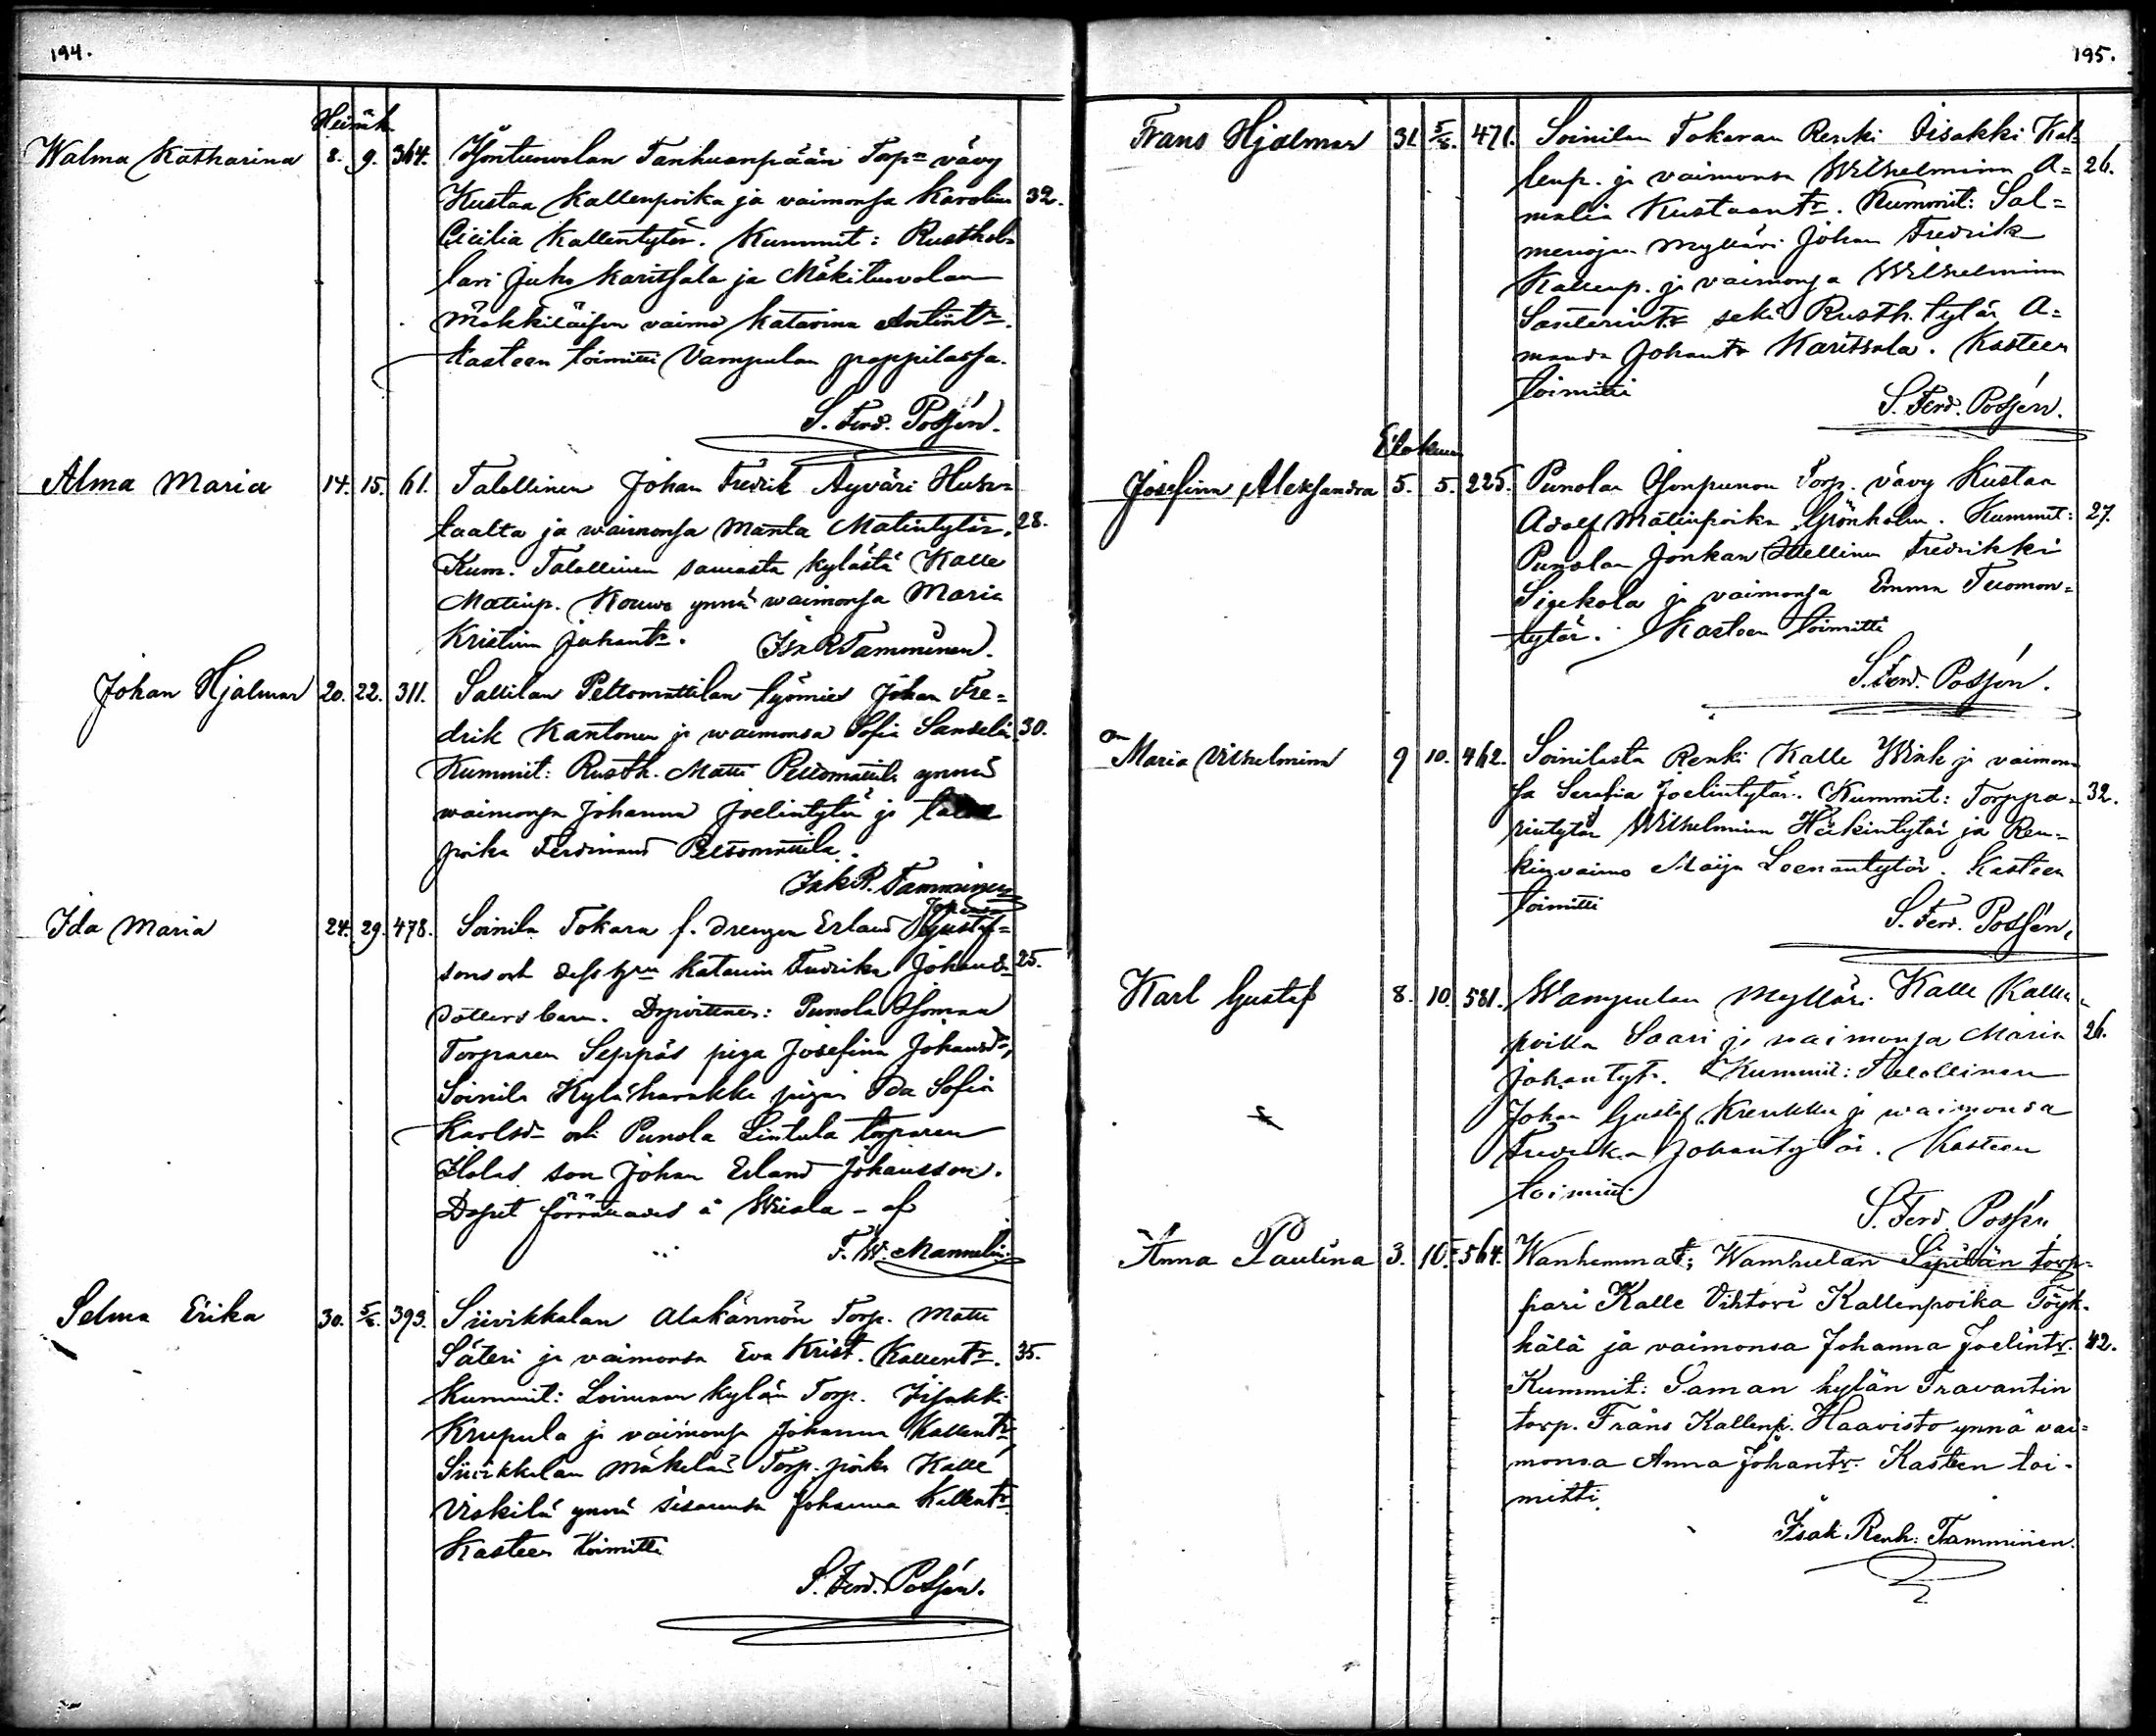 194.
Heinäk.
Walma Katharina 8. 9. 364. Isontuvolan Tanhuanpään Torp:n vävy
Kustaa Kallenpoika ja vaimonsa Karolina 32.
Cicilia Kallentytär. Kummit: Rusthol-
lari Juho Karitsala ja Mäkituvolan
Mökkiläisen vaimo Katarina Antint:r.
Kasteen toimitti Vampulan pappilassa.
S. Ferd. Possén.
Alma Maria 14. 15. 61. Talollinen Johan Fredrik Äyväri Huhta-
taalta ja waimonsa Manta Matintytär. 28.
Kum. Talollinen samasta kylästä Kalle
Matinp. Kouwo ynnä waimonsa Maria
Kristiina Juhant:r. Isk R Tamminen.
Johan Hjalmar 20. 22. 311. Sallilan Peltomattilan työmies Johan Fre-
drik Kantonen ja waimonsa Sofia Sandelin 30.
Kummit: Rusth. Matti Peltomattila ynnä
waimonsa Johanna Joelintytär ja talon
poika Ferdinand Peltomattila.
Isk R. Tamminen
Ida Maria 24. 29. 478. Soinila Tokara f. drengen Erland Gustaf-
sons och dess h:u Katarina Fredrika Johans- 25.
dotters barn. Dopvittnen: Punola
Torparen Seppäs piga Josefina Johansd:r,
Soinila Kyläharakka pigan Ida Sofia
Karlsd:r och Punola Lintula torparen
Ilolas son Johan Erland Johansson.
Dopet förrättades å Wiala – af
F. W. Mannelin.
Selma Erika 30. 5/8. 393. Siivikkalan Alakännön Torp. Matti
Säteri ja vaimonsa Eva Krist. Kallent:r. 35.
Kummit: Loimaan kylän Torp. Iisakki
Krupula ja vaimonsa Johanna Kallent:r,
Siivikkalan Mäkelän Torp. poika Kalle
Viskilä ynnä sisarensa Johanna Kallent:r
Kasteen toimitti
S. Ferd. Possén.
195.
Frans Hjalmar 31. 5/8. 471. Soinilan Tokaran Renki Iisakki Kal-
lenp. ja vaimonsa Wilhelmina A- 26.
malia Kustaant:r. Kummit: Sal-
menojan Mylläri Johan Fredrik
Kallenp. ja vaimonsa Wilhelmina
Santerint:r sekä Rusth. tytär A-
manda Johant:r Karitsala. Kasteen
toimitti
S. Ferd. Possén.
Elokuu
Josefina Aleksandra 5. 5. 225. Punolan Isonpunon Torp. vävy Kustaa
Adolf Matinpoika Grönholm. Kummit: 27.
Punolan Jonkan Itsellinen Fredrikki
Sipekola ja vaimonsa Emma Tuomon-
tytär. Kasteen toimitti
S. Ferd. Possén.
Maria Vilhelmina 9 10. 462. Soinilasta Renki Kalle Wirk ja vaimon-
sa Serafia Joelintytär. Kummit: Torppa- 32.
rintytär Wilhelmina Häkintytär ja Ren-
kinvaimo Maija Leenantytär. Kasteen
toimitti
S. Ferd. Possén,
Karl Gustaf 8. 10. 581. Wampulan Mylläri Kalle Kallen-
poika Saari ja waimonsa Maria 26.
Johantyt:r. Kummit: Talollinen
Johan Gustaf Krenkku ja waimonsa
Fredrika Johantytär. Kasteen
toimitti
S. Ferd. Possén
Anna Paulina 3. 10. 564. Wanhemmat: Wamhulan Sipilän torp-
pari Kalle Vihtori Kallenpoika Töyk-
kälä ja vaimonsa Johanna Joelint:r. 42.
Kummit: Saman kylän Travantin
torp. Frans Kallenp. Haavisto ynnä vai-
monsa Anna Johant:r. Kasteen toi-
mitti
Isak Renh: Tamminen.